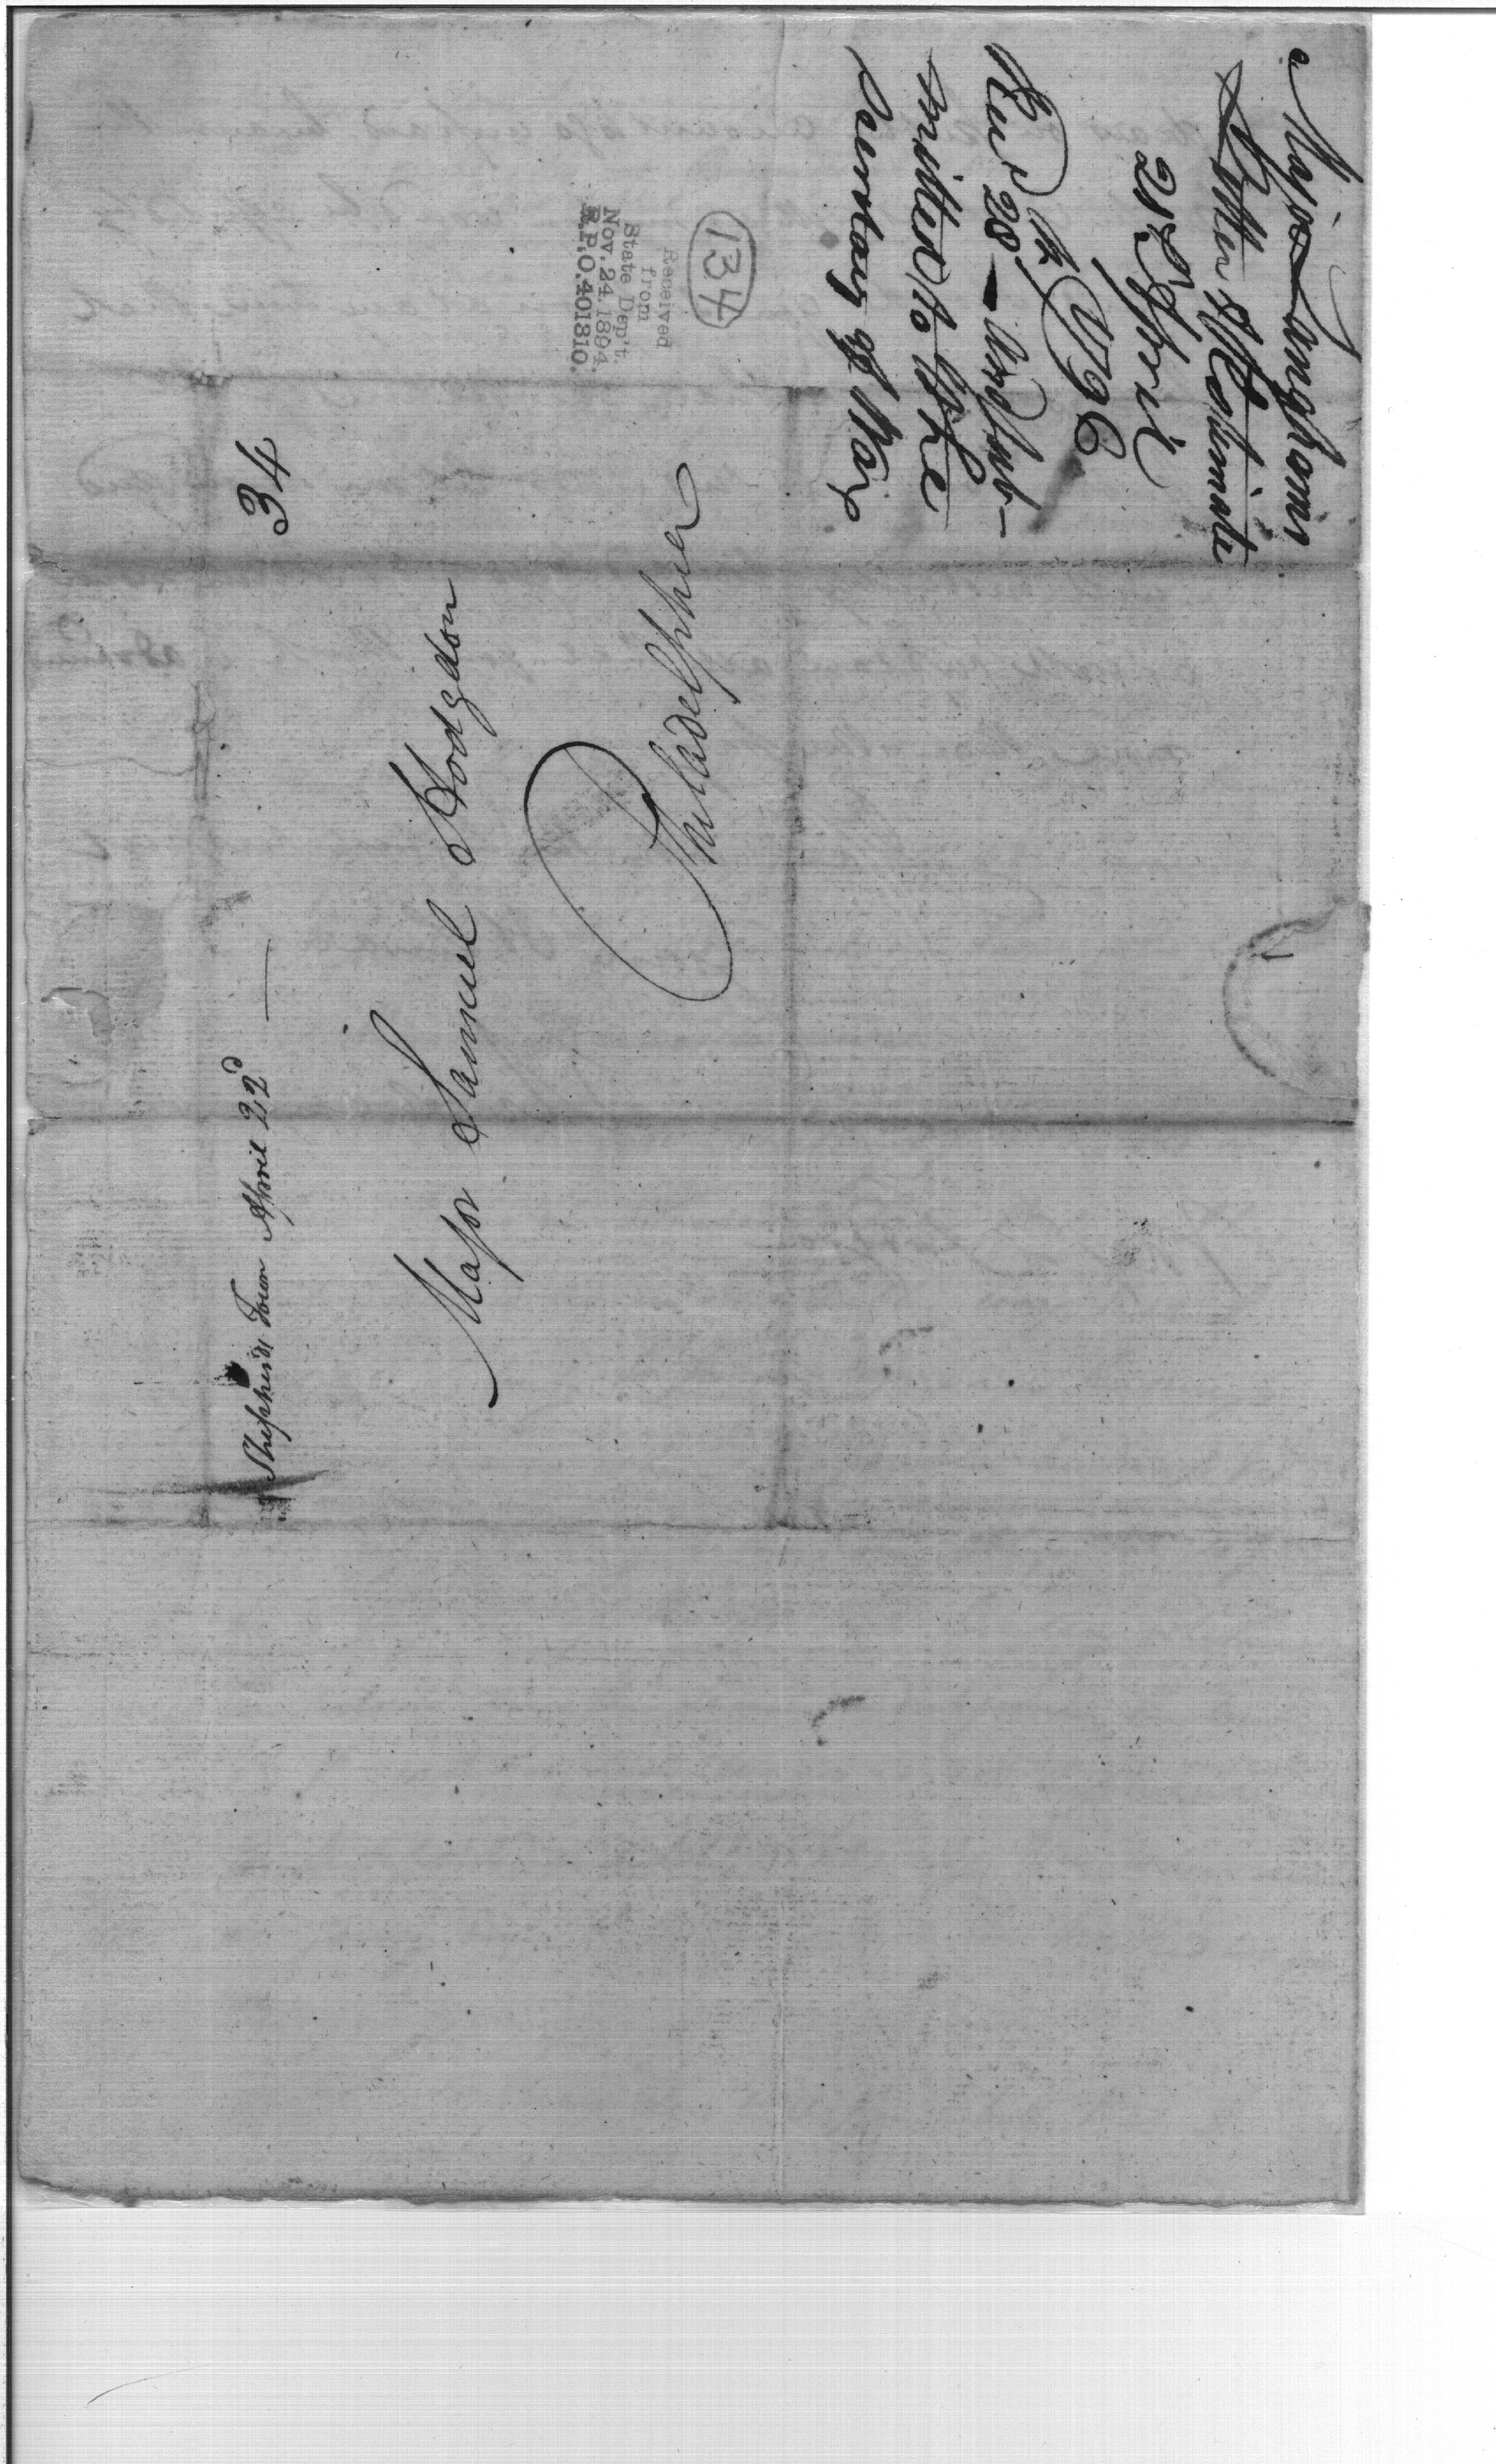 Shepherds Town April 22d
34
Major Samuel Hodgdon
Philadelphia
Major
Letter & Estimate
21st April
1796
Recd 28th and sub-
mitted to the
Secretary of War
134
Received
from
State Dep't.
Nov. 24. 1894.
R.P.O. 401810.